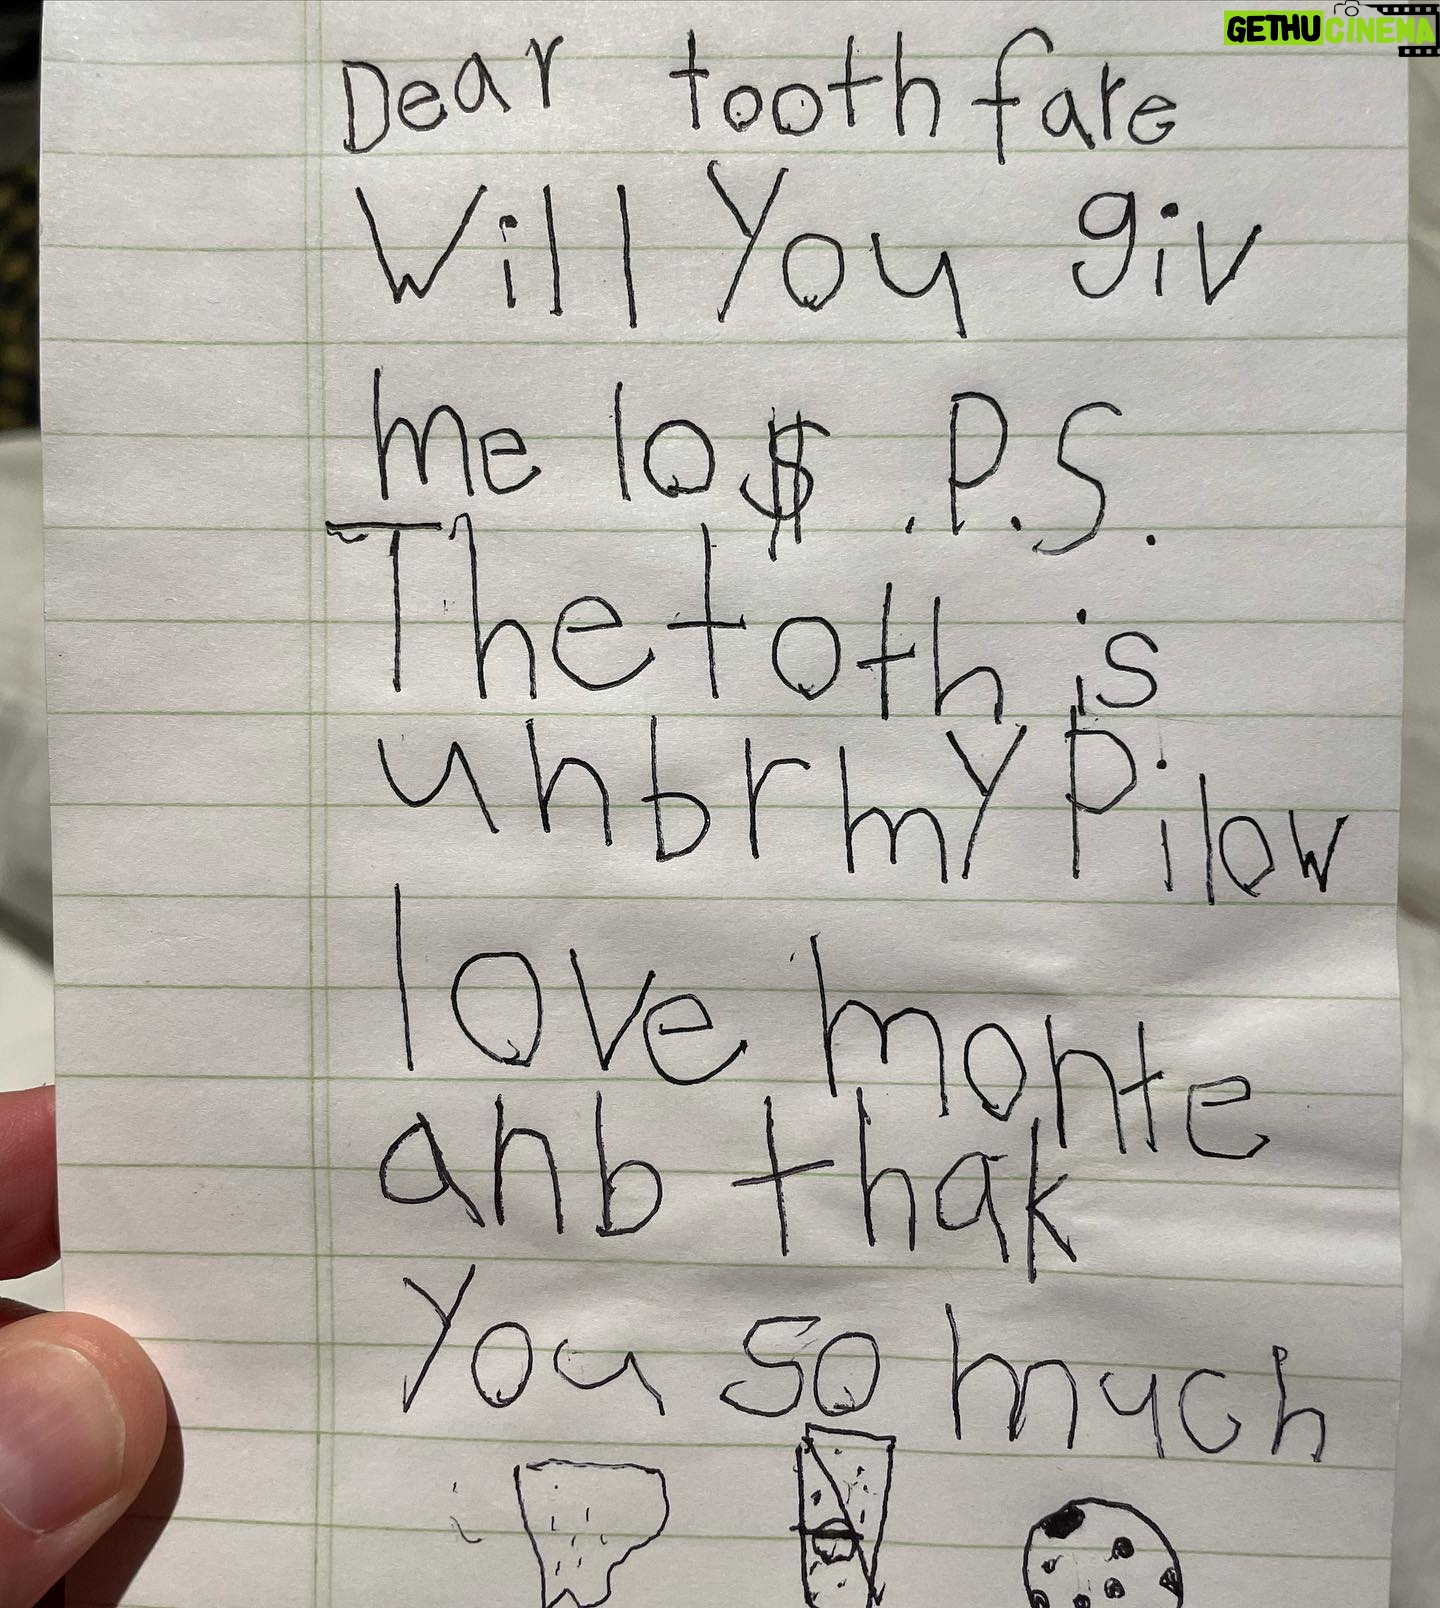 GETHUCINEMA
Dear tooth fare
Will You giv
me 10$ .P.S.
The toth is
unbr my Pilow
love monte
anb thak
you so much